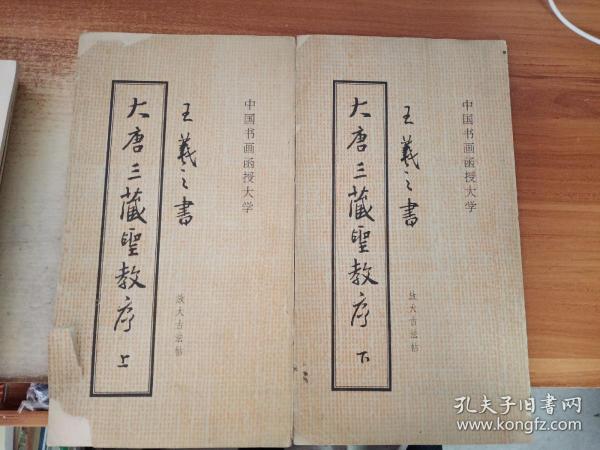 中国书画函授大学
王羲之書
放大古法帖
大唐三藏聖教序 上
中国书画函授大学
王羲之書
放大古法帖
大唐三藏聖教序 下
孔夫子旧书网
www.kongfz.com